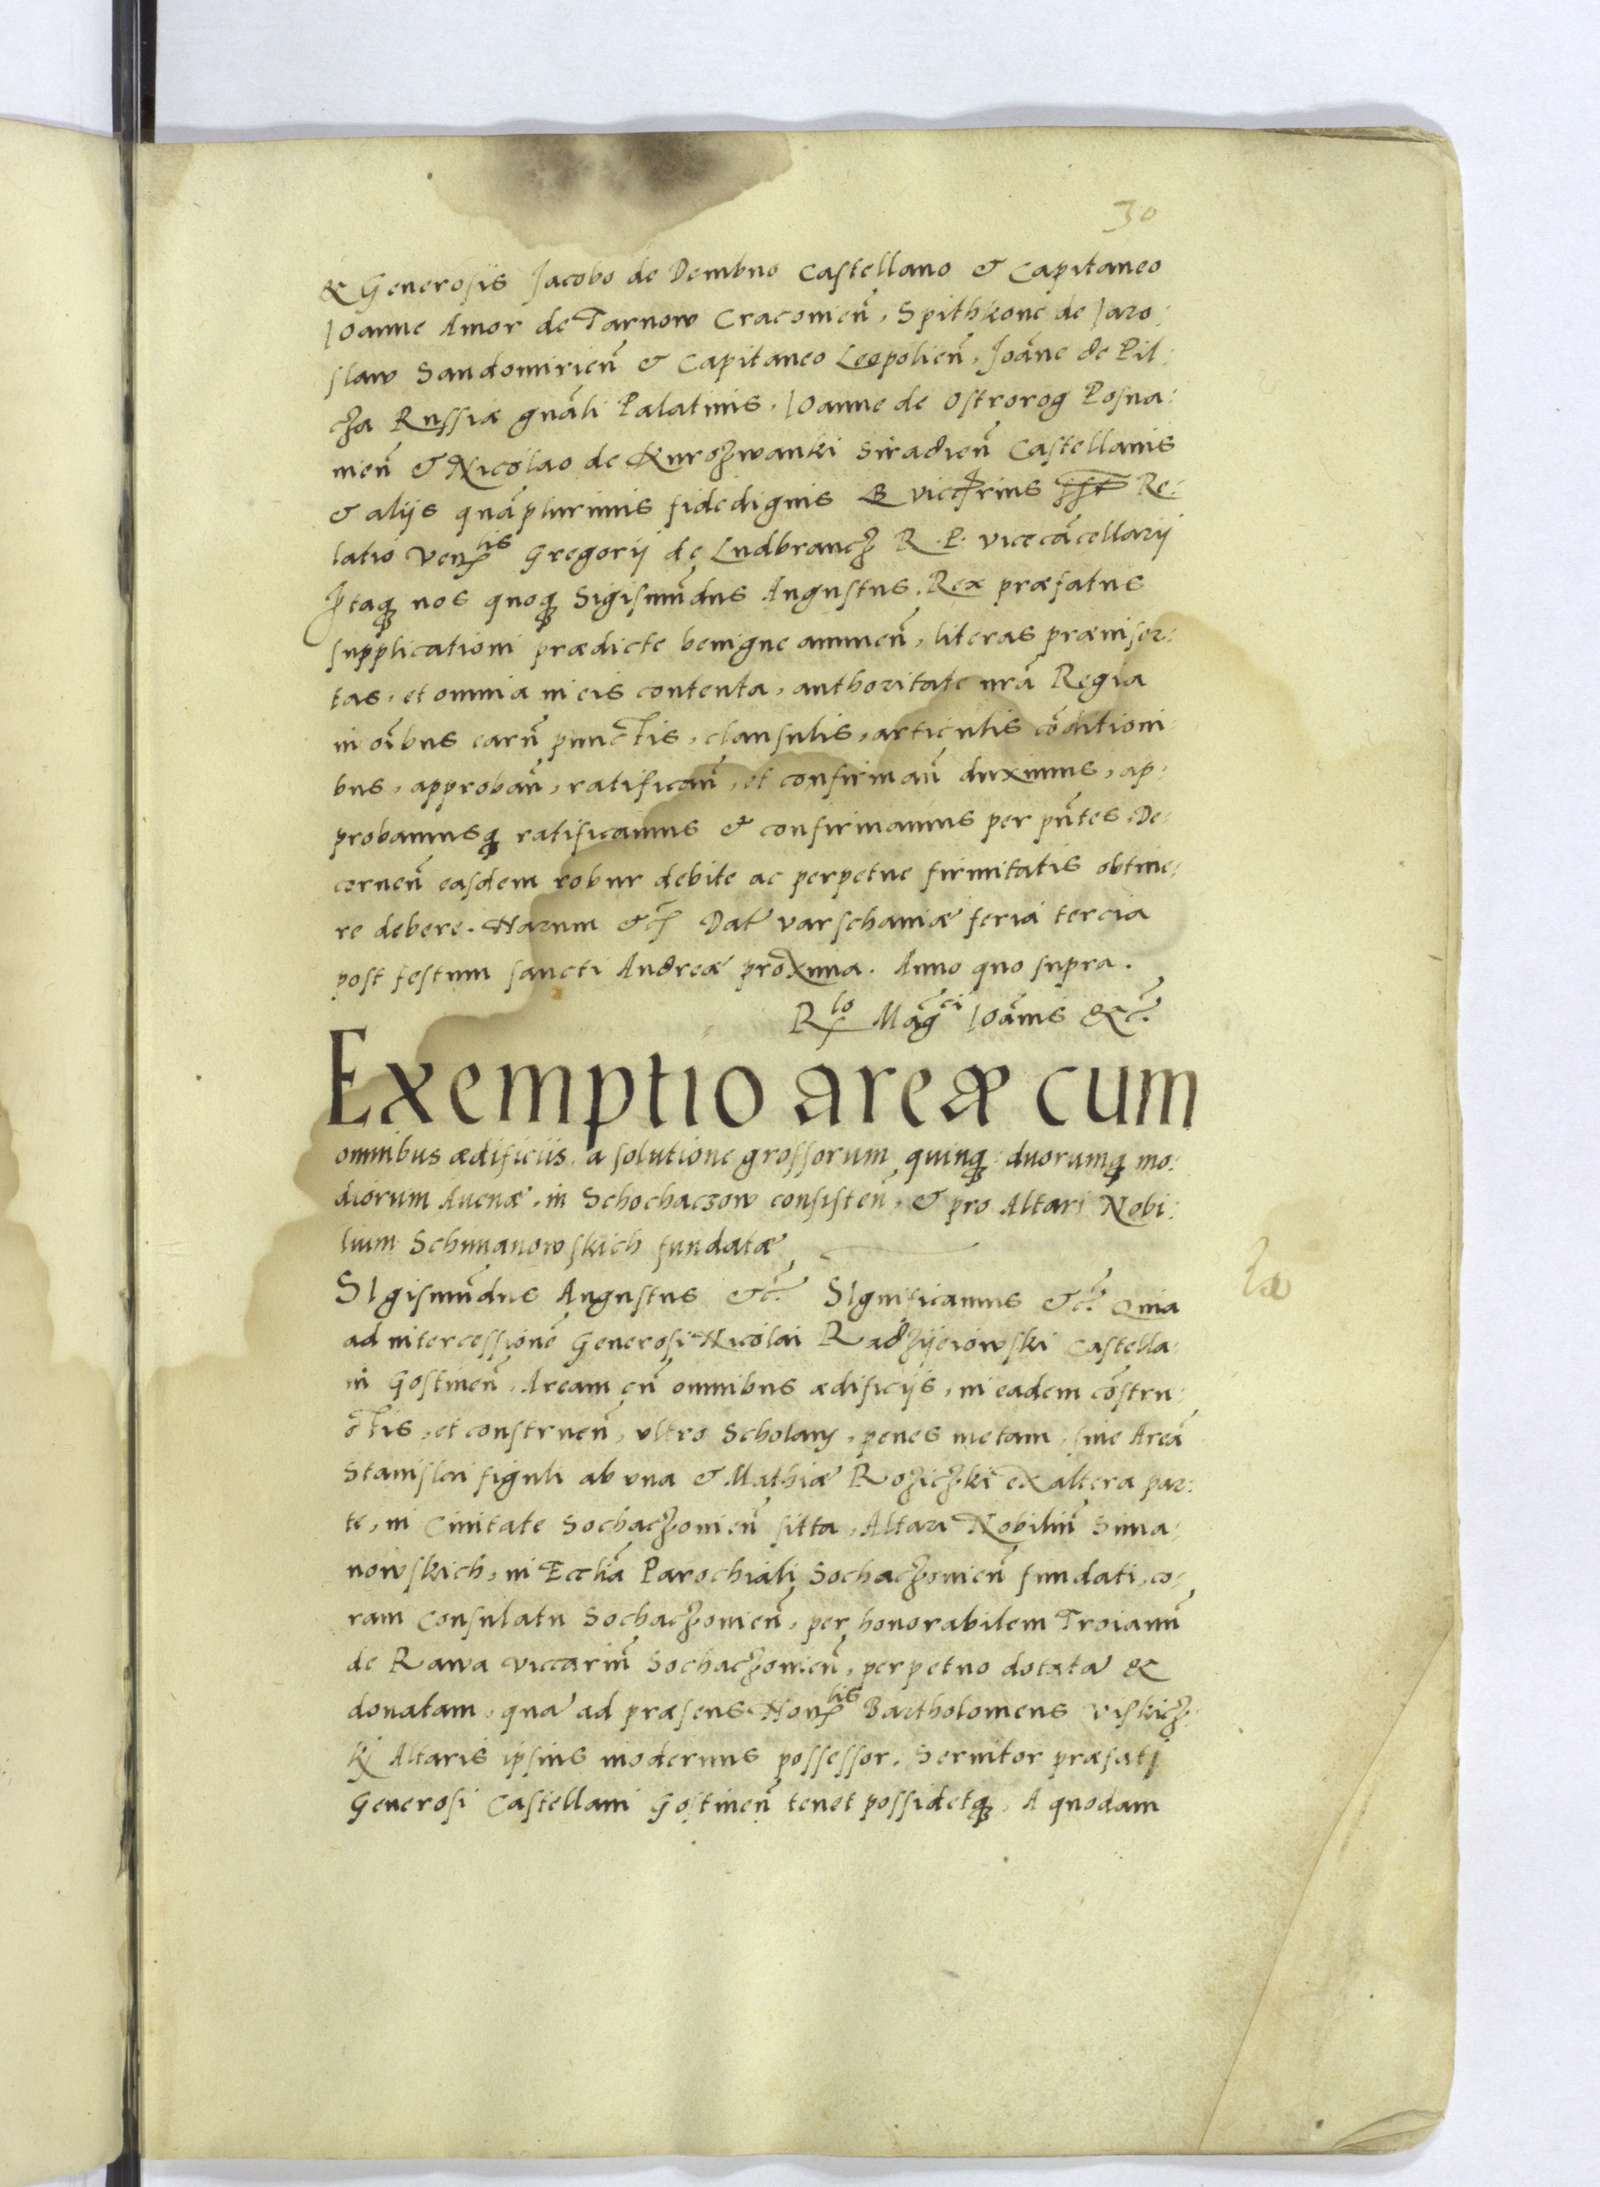 30
& Generosis Jacobo de Dembno Castellano & Capitaneo
Ioanne Amor de Tarnow Cracouien̄, Spithkone de Jaro:
slaw Sandomirien̄ & Capitaneo Leopolien̄, Joāne de Pil:
cza Russiæ gnāli Palatinis, Ioanne de Ostrorog Posna:
nien̄ & Nicolao de Kurozwanki Siradien̄ Castellanis
& alijs quāplurimis fidedignis Re:
latio Ven̄lis Gregorij de Ludbrancz R. P. vicecācellarij
Itaq nos quoq Sigismūdus Augustus Rex præfatus
supplicationi prædicte benigne annuen̄, literas præinser:
tas, et omnia in eis contenta, authoritate nrā Regia
in oībus earū punctis, clausulis, articulis cōditioni:
bus, approbān̄, ratificān̄, et confirmān̄ duximus, ap:
probamusq ratificamus & confirmamus per pn̄tes, De:
cernen̄ easdem robur debite ac perpetue firmitatis obtine:
re debere. Harum &c Dat Varschauiæ feria tercia
post festum sancti Andreæ proxima. Anno quo supra.
Rlo Māgci Ioānis &c.
Exemptio areæ cum
omnibus ædificiis, a solutione grossorum quinq: duorumq mo:
diorum Auenæ, in Schochaczow consisten̄, & pro Altari Nobi:
lium Schimanowskich fundatæ
SIgismūdus Augustus &c. SIgnificamus &c. Quia
ad intercessionē Generosi Nicolai Radzijeiowski Castella:
ni Gostinen̄, Aream cū omnibus ædificijs, in eadem cōstru:
ctis, et construen̄, vltro Scholam, penes metam, siue Areā
Stanislai figuli ab vna & Mathiæ Roziczki ex altera par:
te, in Ciuitate Sochaczouien̄ sitta, Altari Nobiliū Sima:
nowskich, in Eccliā Parochiali Sochaczouien̄ fundati, co:
ram Consulatu Sochaczouien̄, per honorabilem Troianū
de Rawa viccariū Sochaczouien̄, perpetuo dotata &
donatam, qua ad præsens Honlis Bartholomeus Viskicz:
kj Altaris ipsius modernus possessor, Seruitor præfatj
Generosi Castellani Gostinen̄ tenet possidetq, A quodam